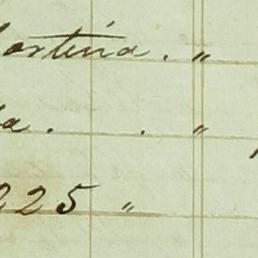 astina . "
a . . "
225 "